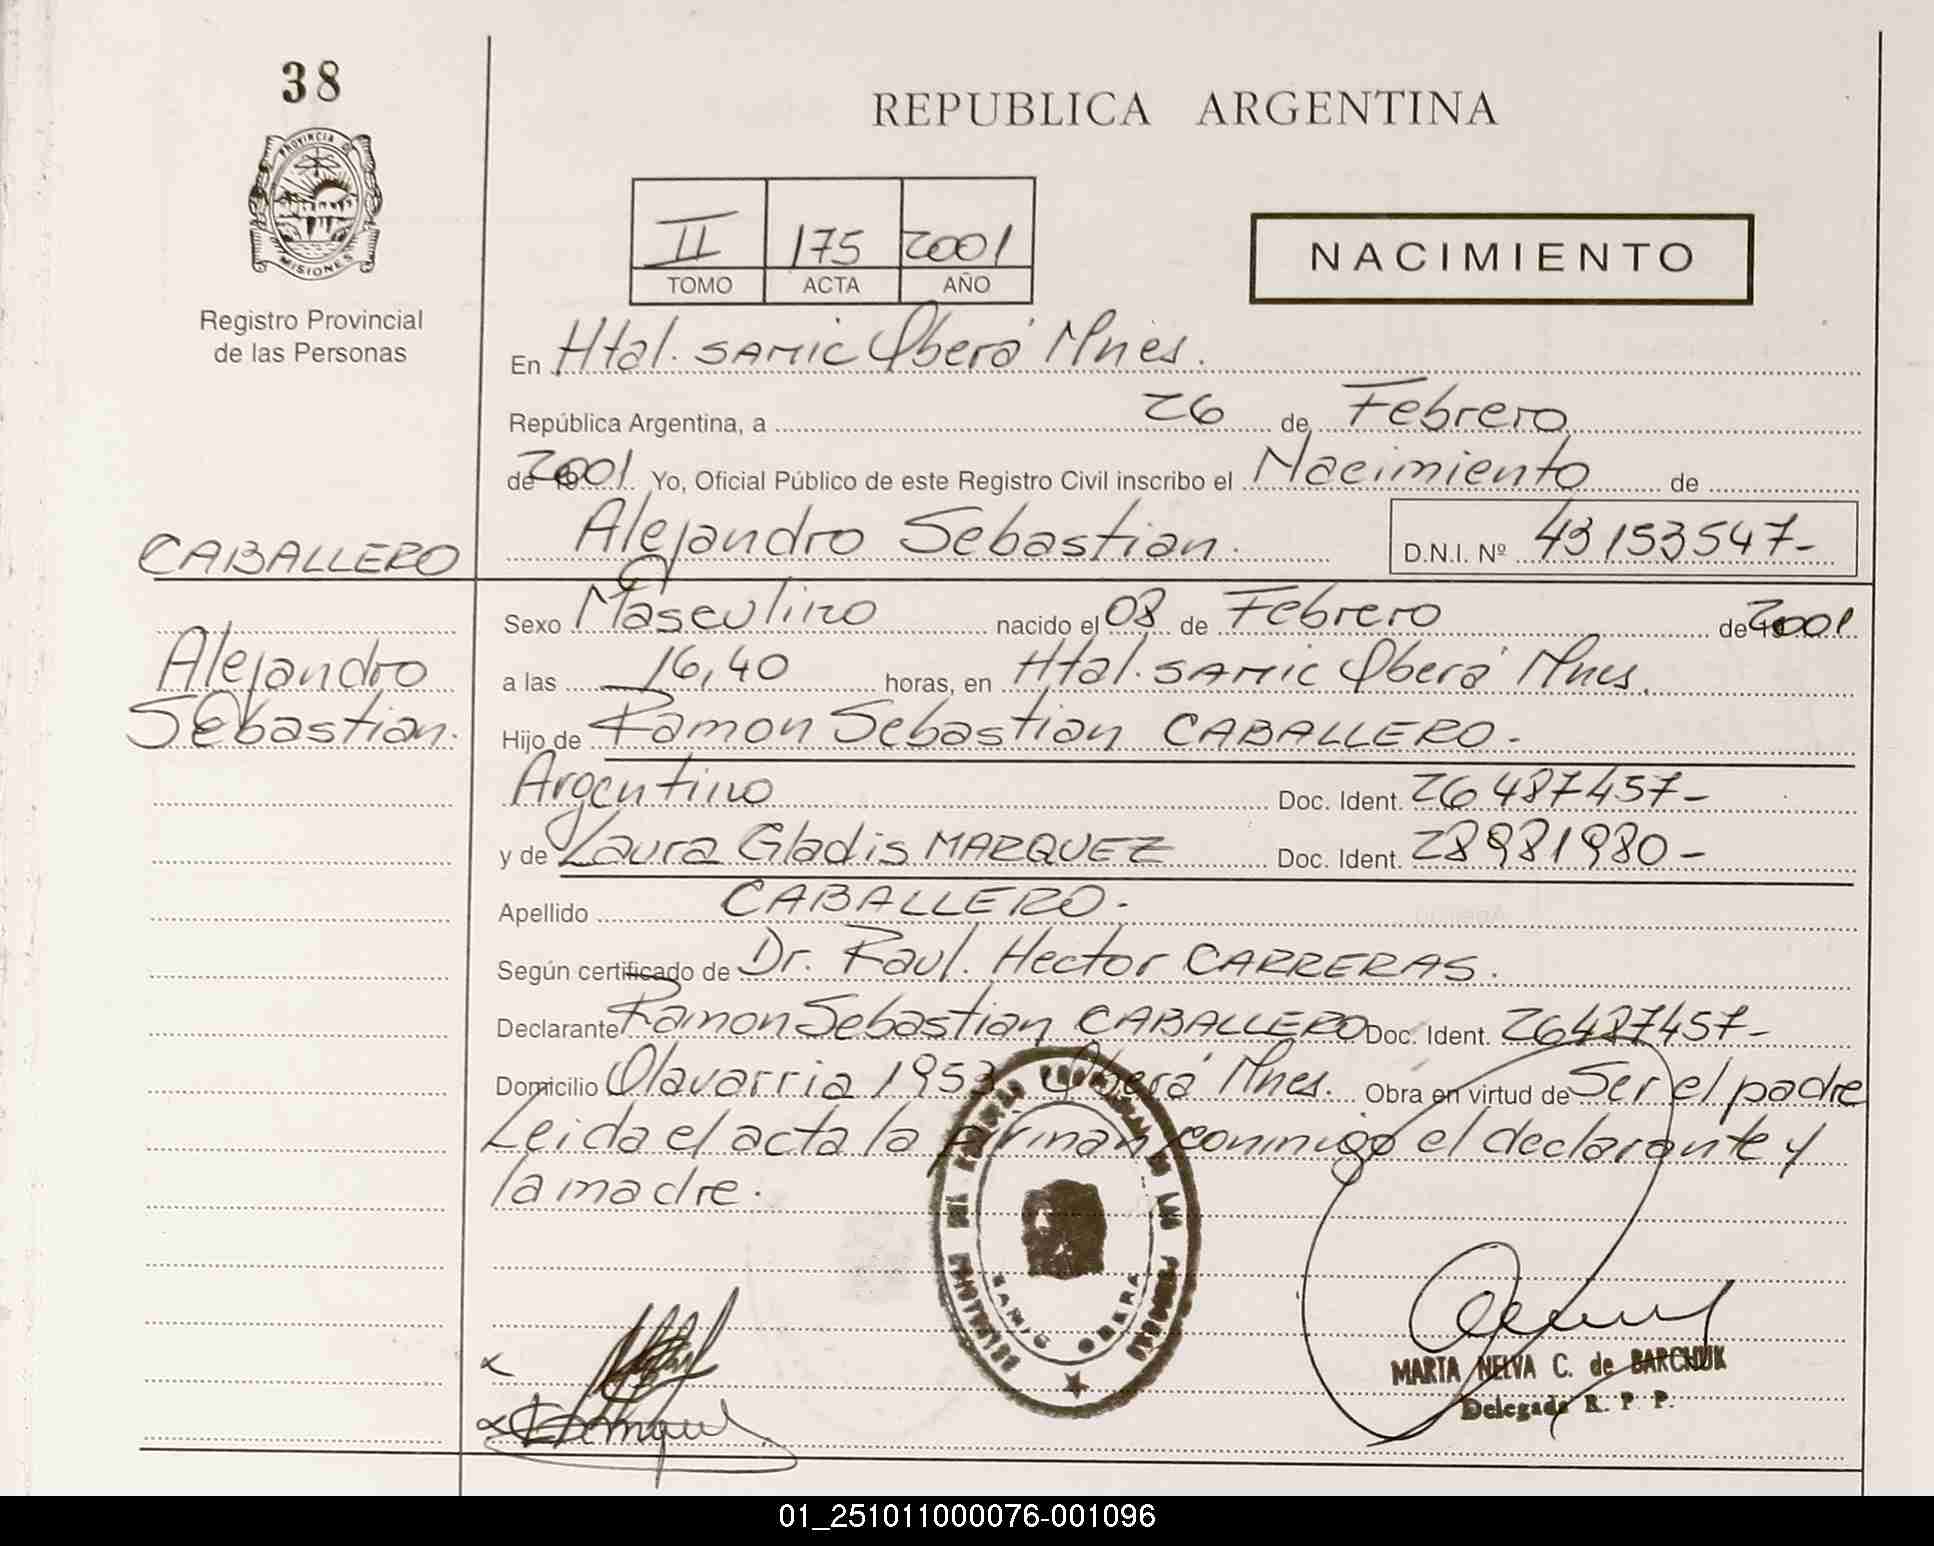 38
PROVINCIA DE
MISIONES
Registro Provincial
de las Personas
REPUBLICA ARGENTINA
II 175 2001
TOMO ACTA AÑO
NACIMIENTO
En Htal. SAMIC Oberá Mnes.
República Argentina, a 26 de Febrero
de 2001 Yo, Oficial Público de este Registro Civil inscribo el Nacimiento de
Alejandro Sebastian. D.N.I. Nº 43153547-
CABALLERO
Alejandro
Sebastian.
Sexo Masculino nacido el 08 de Febrero de 2001
a las 16,40 horas, en Htal. SAMIC Oberá Mnes.
Hijo de Ramon Sebastian CABALLERO.
Argentino Doc. Ident. 26487457-
y de Laura Gladis MARQUEZ Doc. Ident. 28981980-
Apellido CABALLERO.
Según certificado de Dr. Raul. Hector CARRERAS.
Declarante Ramon Sebastian CABALLERO Doc. Ident. 26487457-
Domicilio Olavarria 1953 Oberá Mnes. Obra en virtud de Ser el padre
Leida el acta la firman conmigo el declarante y
la madre.
SAMIC OBERA
MARTA NELVA C. de BARCHUK
Delegada R. P. P.
01_251011000076-001096